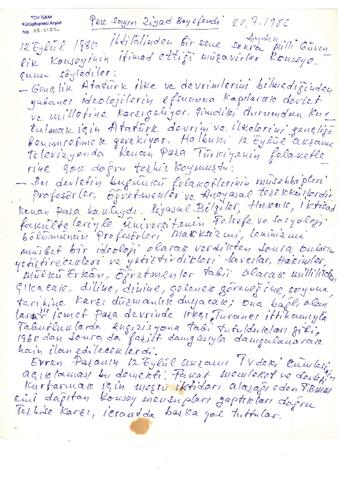 TDV İSAM
Kütüphanesi Arşivi
No
Ziyad Beyefendi 22.7.1986
12 Eylül 1980 ihtilâlinden bir sene sonra Milli Güven-
lik Konseyinin itimad ettiği müşavirler Konseye
şunu söylediler:
— Gençlik Atatürk ilke ve devrimlerini bilmediğinden
yabancı ideolojilerin efsununa kapılarak devlet
ve milletine karşı geliyor. Şimdiki durumdan kur-
tulmak için Atatürk devrim ve ilkelerini gençliğe
benimsetmek gerekiyor. Halbuki 12 Eylül akşamı
televizyonda Kenan Paşa Türkiyenin felaketle-
rine çok doğru teşhis koymuştu:
— Bu devletin bugünkü felaketlerinin müsebbipleri
Profesörler, Öğretmenler ve Anayasal teşekküllerdir
Kenan Paşa haklıydı. Siyasal Bilgiler, Hukuk, İktisad
fakülteleriyle Üniversitenin Felsefe ve sosyoloji
bölümünün Profesörleri Marksizmi, Leninizmi
müsbet bir ideoloji olarak verdikten sonra onların
yetiştirecekleri ve yetiştirdikleri Savcılar, Hakimler,
Mülkü Erkân, Öğretmenler tabii olarak milliliğe
çıkacak, diline, dinine, gelenek göreneğine, soyuna,
tarihine karşı düşmanlık duyacak; ona bağlı olan
ları İsmet Paşa devrinde ırkçı Turancı ittihamıyla
Tabutluklarda engizisyona tabi tutuldukları gibi,
1960 dan sonra da faşist damgasıyla damgalanarak
hain ilan edileceklerdi.
Evren Paşanın 12 Eylül akşamı TV deki cümlesinin
açıklaması bu demekti. Fakat memleket ve devleti
kurtarmak için meşru iktidarı alaşağı eden T.B.M.M
sini dağıtan Konsey mensupları yaptıkları doğru
teşhise karşı, icraatda başka yol tuttular.